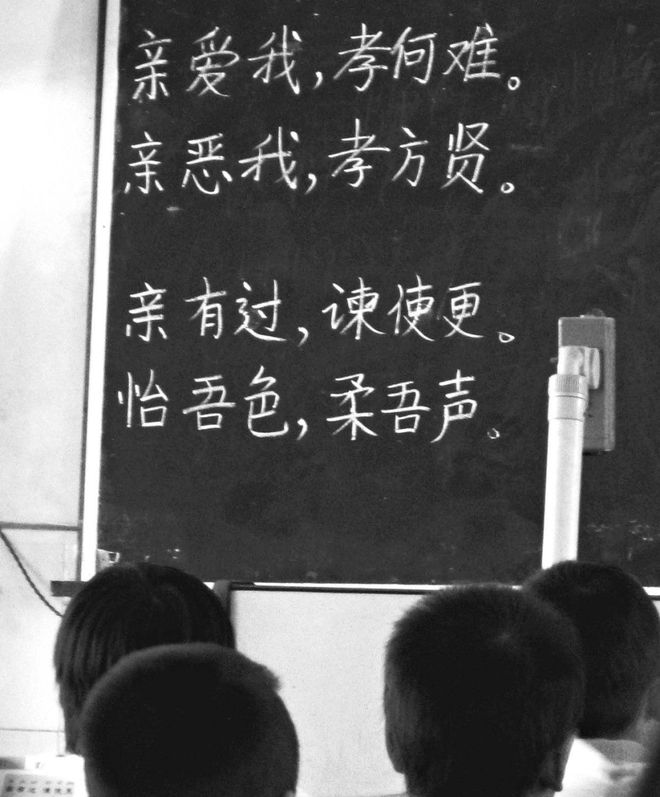 亲爱我,孝何难。
亲恶我,孝方贤。
亲有过,谏使更。
怡吾色,柔吾声。